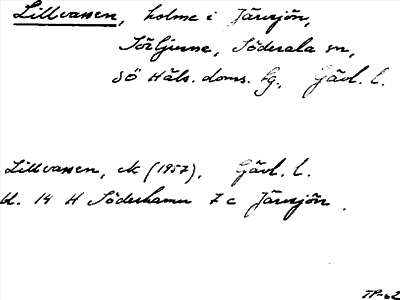 Lillvassen, holme i Järvsjön,
Sörljusne, Söderala sn,
SÖ Häls. doms. fg., Gävl. l.
Lillvassen, ek (1957), Gävl. l.
bl. 14 H Söderhamn 7 c Järvsjön.
TP-62